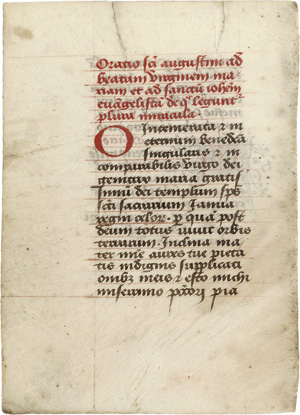 Oratio scī augustini ad
beatam virginem ma
riam et ad sanctū iohēm
evāgelistā de q̄ legunt
plura miracula
O Intemerata et in
eternum benedcā
singularis et in
comparabilis virgo dei
genitrix maria gratis
simū dei templum spūs
scī sacrarium Janua
regni celoꝝ. ꝑ quā post
deum totus viuit orbis
terrarum. Inclina ma
ter mīe aures tue pieta
tis indignis supplicati
onibꝫ meis et esto michi
miserrimo pctōri pia